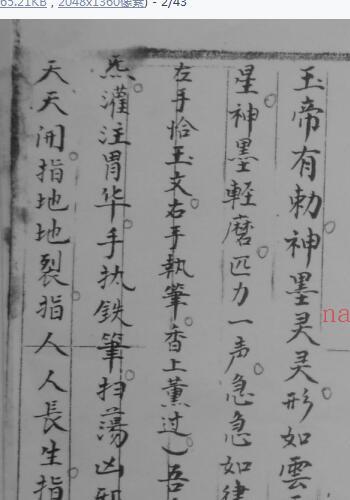 65.21KB，2048x1360像素) - 2/43
玉帝有勅神墨灵灵形如雲
星神墨軽磨匹力一声急急如律
左手恰玉文右手執筆香上薰过吾
炁灌注胃华手执鉄筆扫蕩凶邪
天天開指地地裂指人人長生指
na